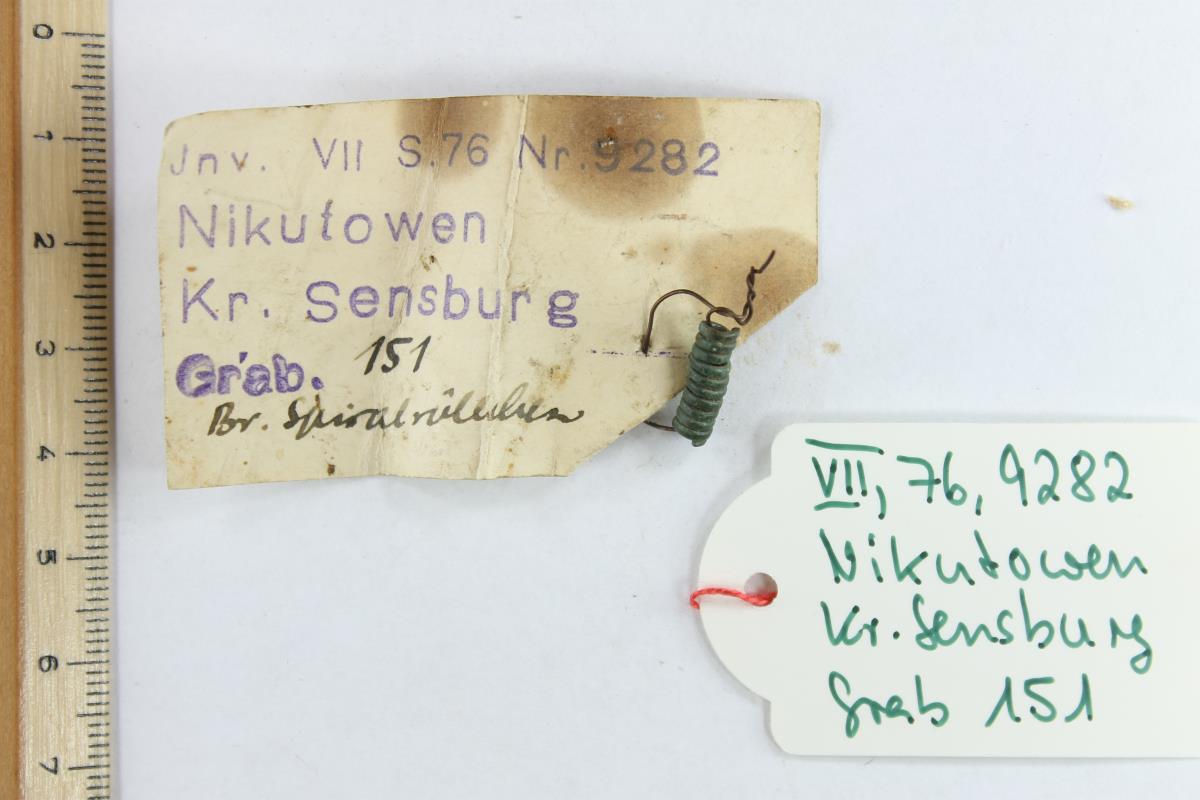 Jnv. VII S.76 Nr.9282
Nikutowen
Kr. Sensburg
Grab. 151
Br. Spiralröllchen
VII, 76, 9282
Nikutowen
Kr. Sensburg
Grab 151
0
1
2
3
4
5
6
7